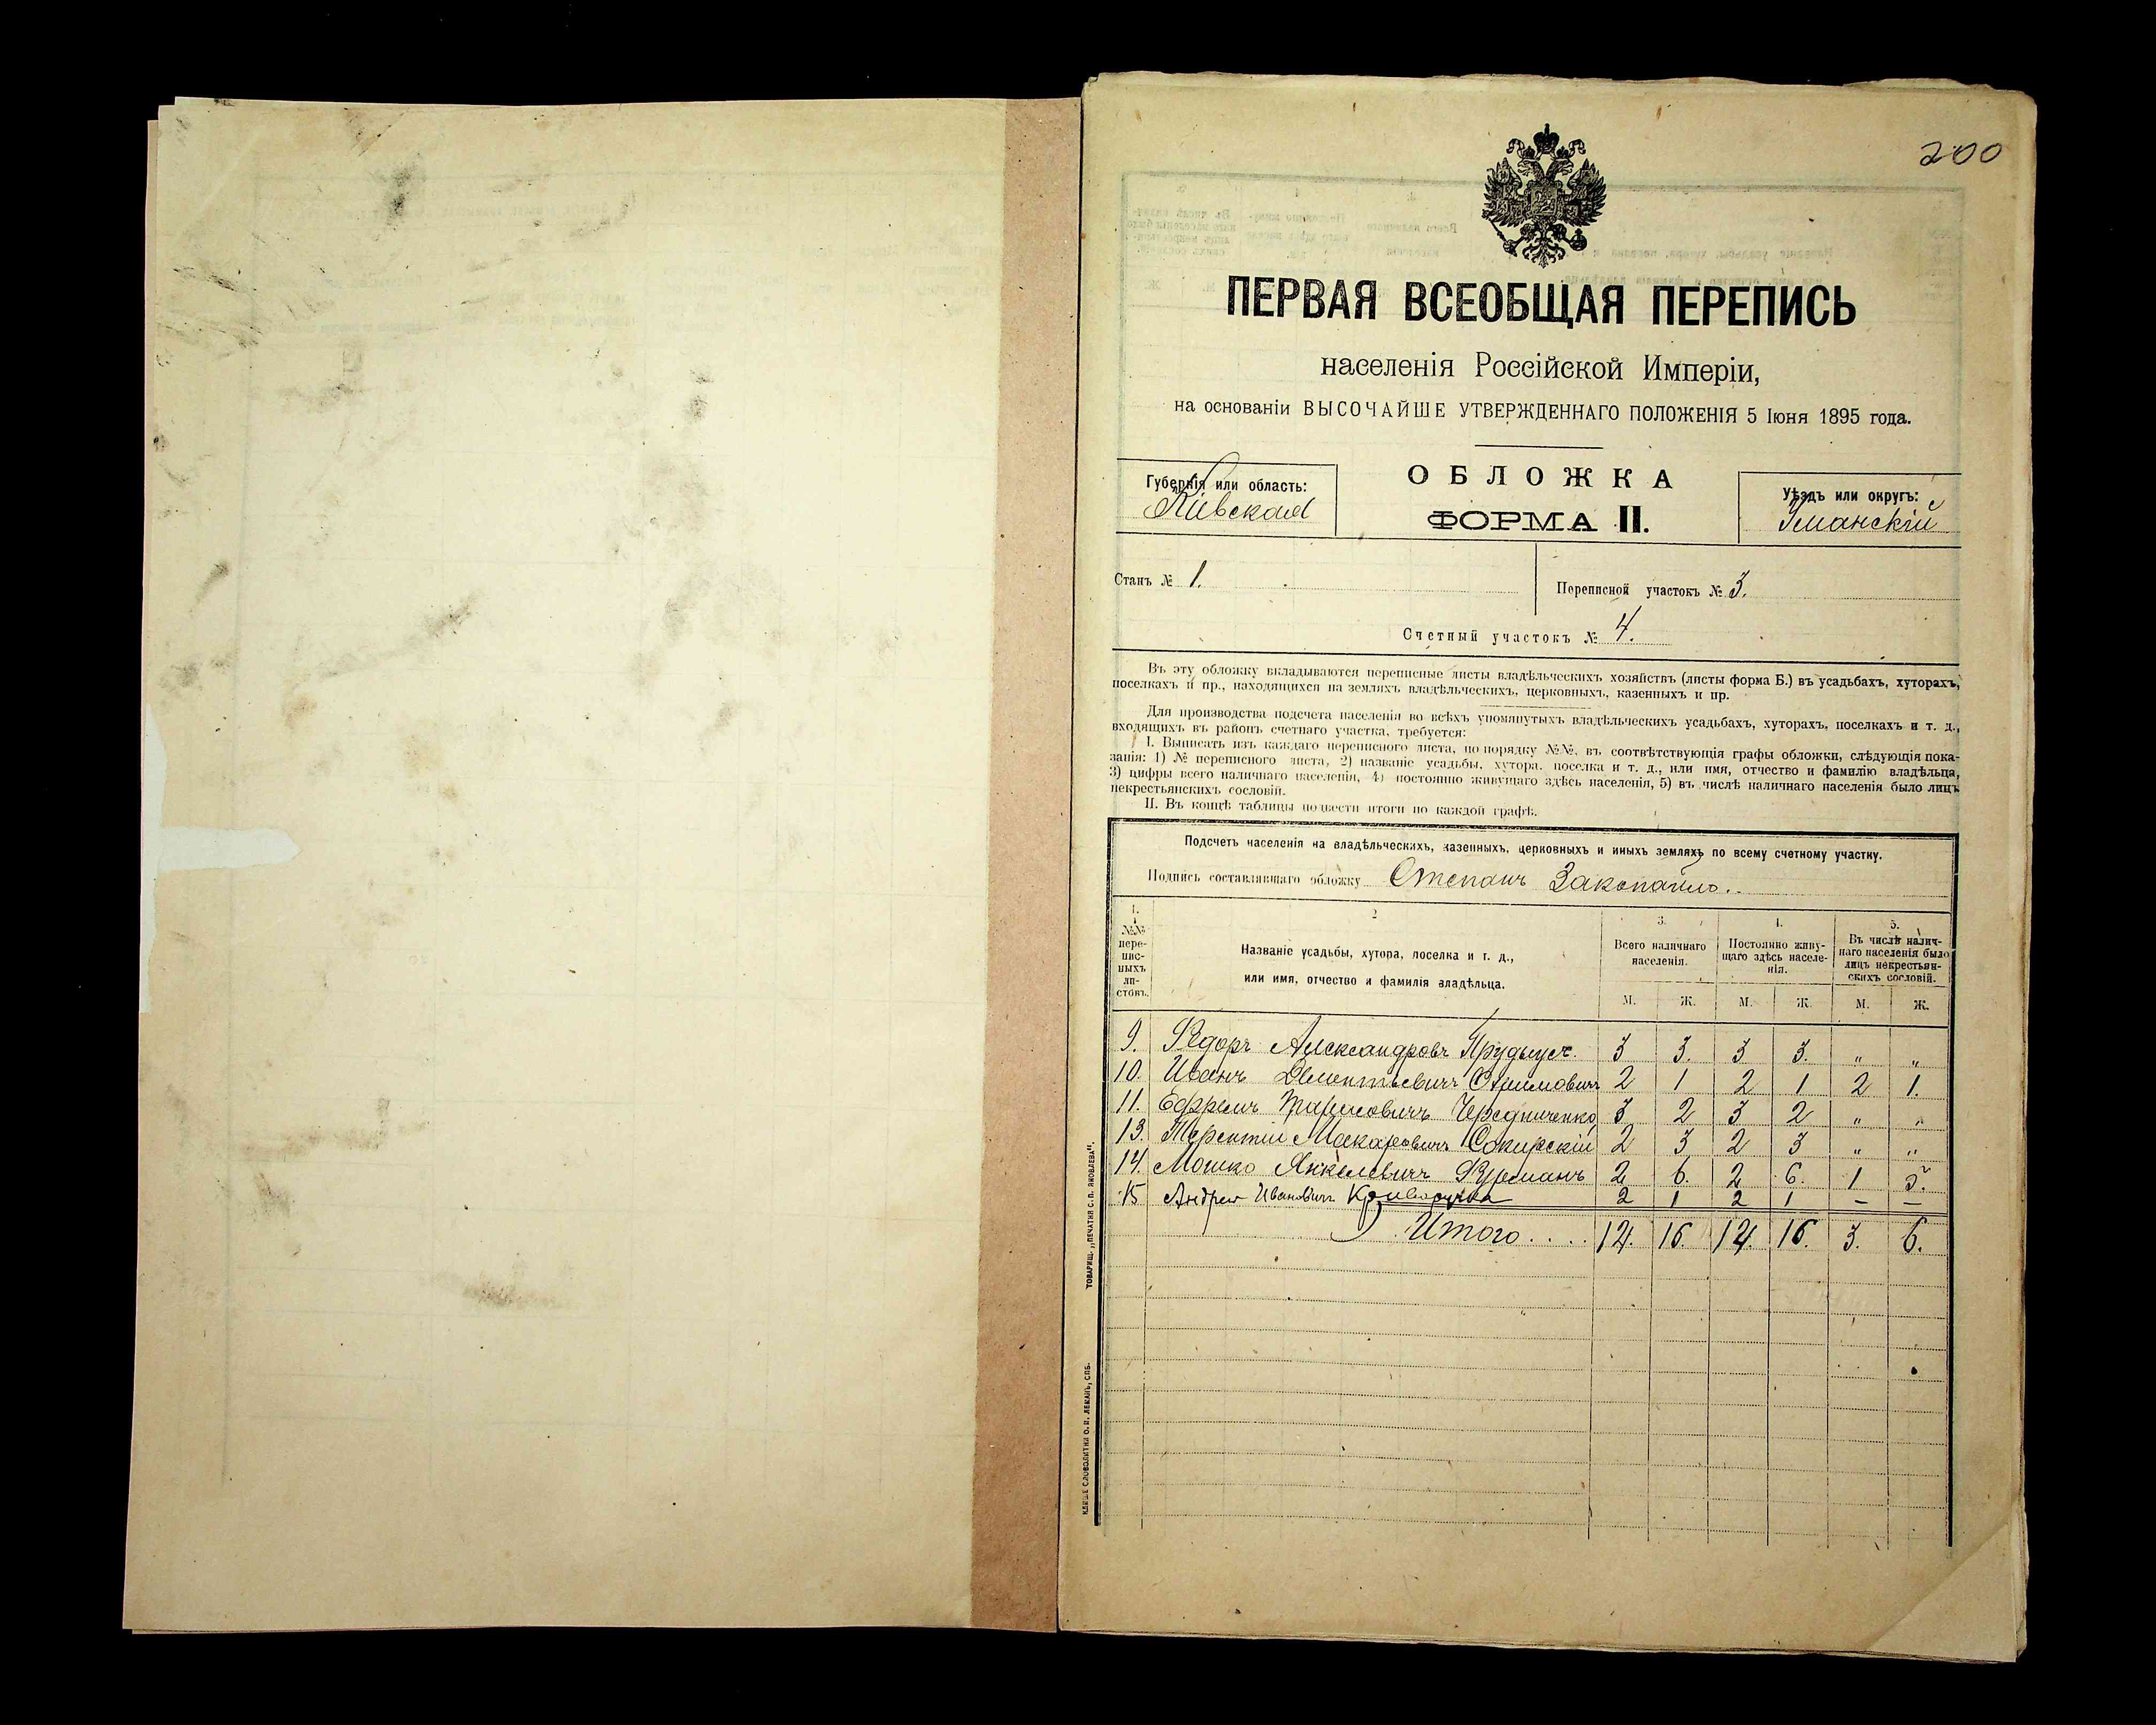 200
ПЕРВАЯ ВСЕОБЩАЯ ПЕРЕПИСЬ
населенія Россійской Имперіи,
на основаніи ВЫСОЧАЙШЕ УТВЕРЖДЕННАГО ПОЛОЖЕНІЯ 5 Іюня 1895 года.
Губернія или область:
Кіевская
ОБЛОЖКА
ФОРМА II.
Уѣздъ или округъ:
Уманскій
Станъ № 1.
Переписной участокъ № 3.
Счетный участокъ № 4.
Въ эту обложку вкладываются переписные листы владѣльческихъ хозяйствъ (листы форма Б.) въ усадьбахъ, хуторахъ,
поселкахъ и пр., находящихся на земляхъ владѣльческихъ, церковныхъ, казенныхъ и пр.
Для производства подсчета населенія во всѣхъ упомянутыхъ владѣльческихъ усадьбахъ, хуторахъ, поселкахъ и т. д.,
входящихъ въ районъ счетнаго участка, требуется:
I. Выписать изъ каждаго переписного листа, по порядку №№, въ соотвѣтствующія графы обложки, слѣдующія пока-
занія: 1) № переписного листа, 2) названіе усадьбы, хутора, поселка и т. д., или имя, отчество и фамилію владѣльца,
3) цифры всего наличнаго населенія, 4) постоянно живущаго здѣсь населенія, 5) въ числѣ наличнаго населенія было лицъ
некрестьянскихъ сословій.
II. Въ концѣ таблицы подвести итоги по каждой графѣ.
Подсчетъ населенія на владѣльческихъ, казенныхъ, церковныхъ и иныхъ земляхъ по всему счетному участку.
Подпись составлявшаго обложку Степанъ Закопайло.
1. 2 3. 4. 5.
№№ пере-писныхъ ли-стовъ.
Названіе усадьбы, хутора, поселка и т. д.,
или имя, отчество и фамилія владѣльца.
Всего наличнаго населенія.
Постоянно живу-щаго здѣсь населе-нія.
Въ числѣ налич-наго населенія было лицъ некрестьян-скихъ сословій.
М. Ж. М. Ж. М. Ж.
9. Ѳедоръ Александровъ 3 3. 3 3. „ „
10. Иванъ Дементьевичъ 2 1 2 1 2 1.
11. Ефремъ Чередниченко 3 2 3 2 „ „
13. Терентій Макаровичъ Сокирскій 2 3 2 3 „ „
14. Мошко Янкелевичъ Фурманъ 2 6. 2 6. 1 5.
15 Андрей Ивановичъ Криворучка 2 1 2 1 – –
Итого .... 14. 16. 14. 16. 3. 6.
ТОВАРИЩ. „ПЕЧАТНЯ С. П. ЯКОВЛЕВА“.
КЛИШЕ СЛОВОЛИТНИ О. И. ЛЕМАНЪ, СПБ.